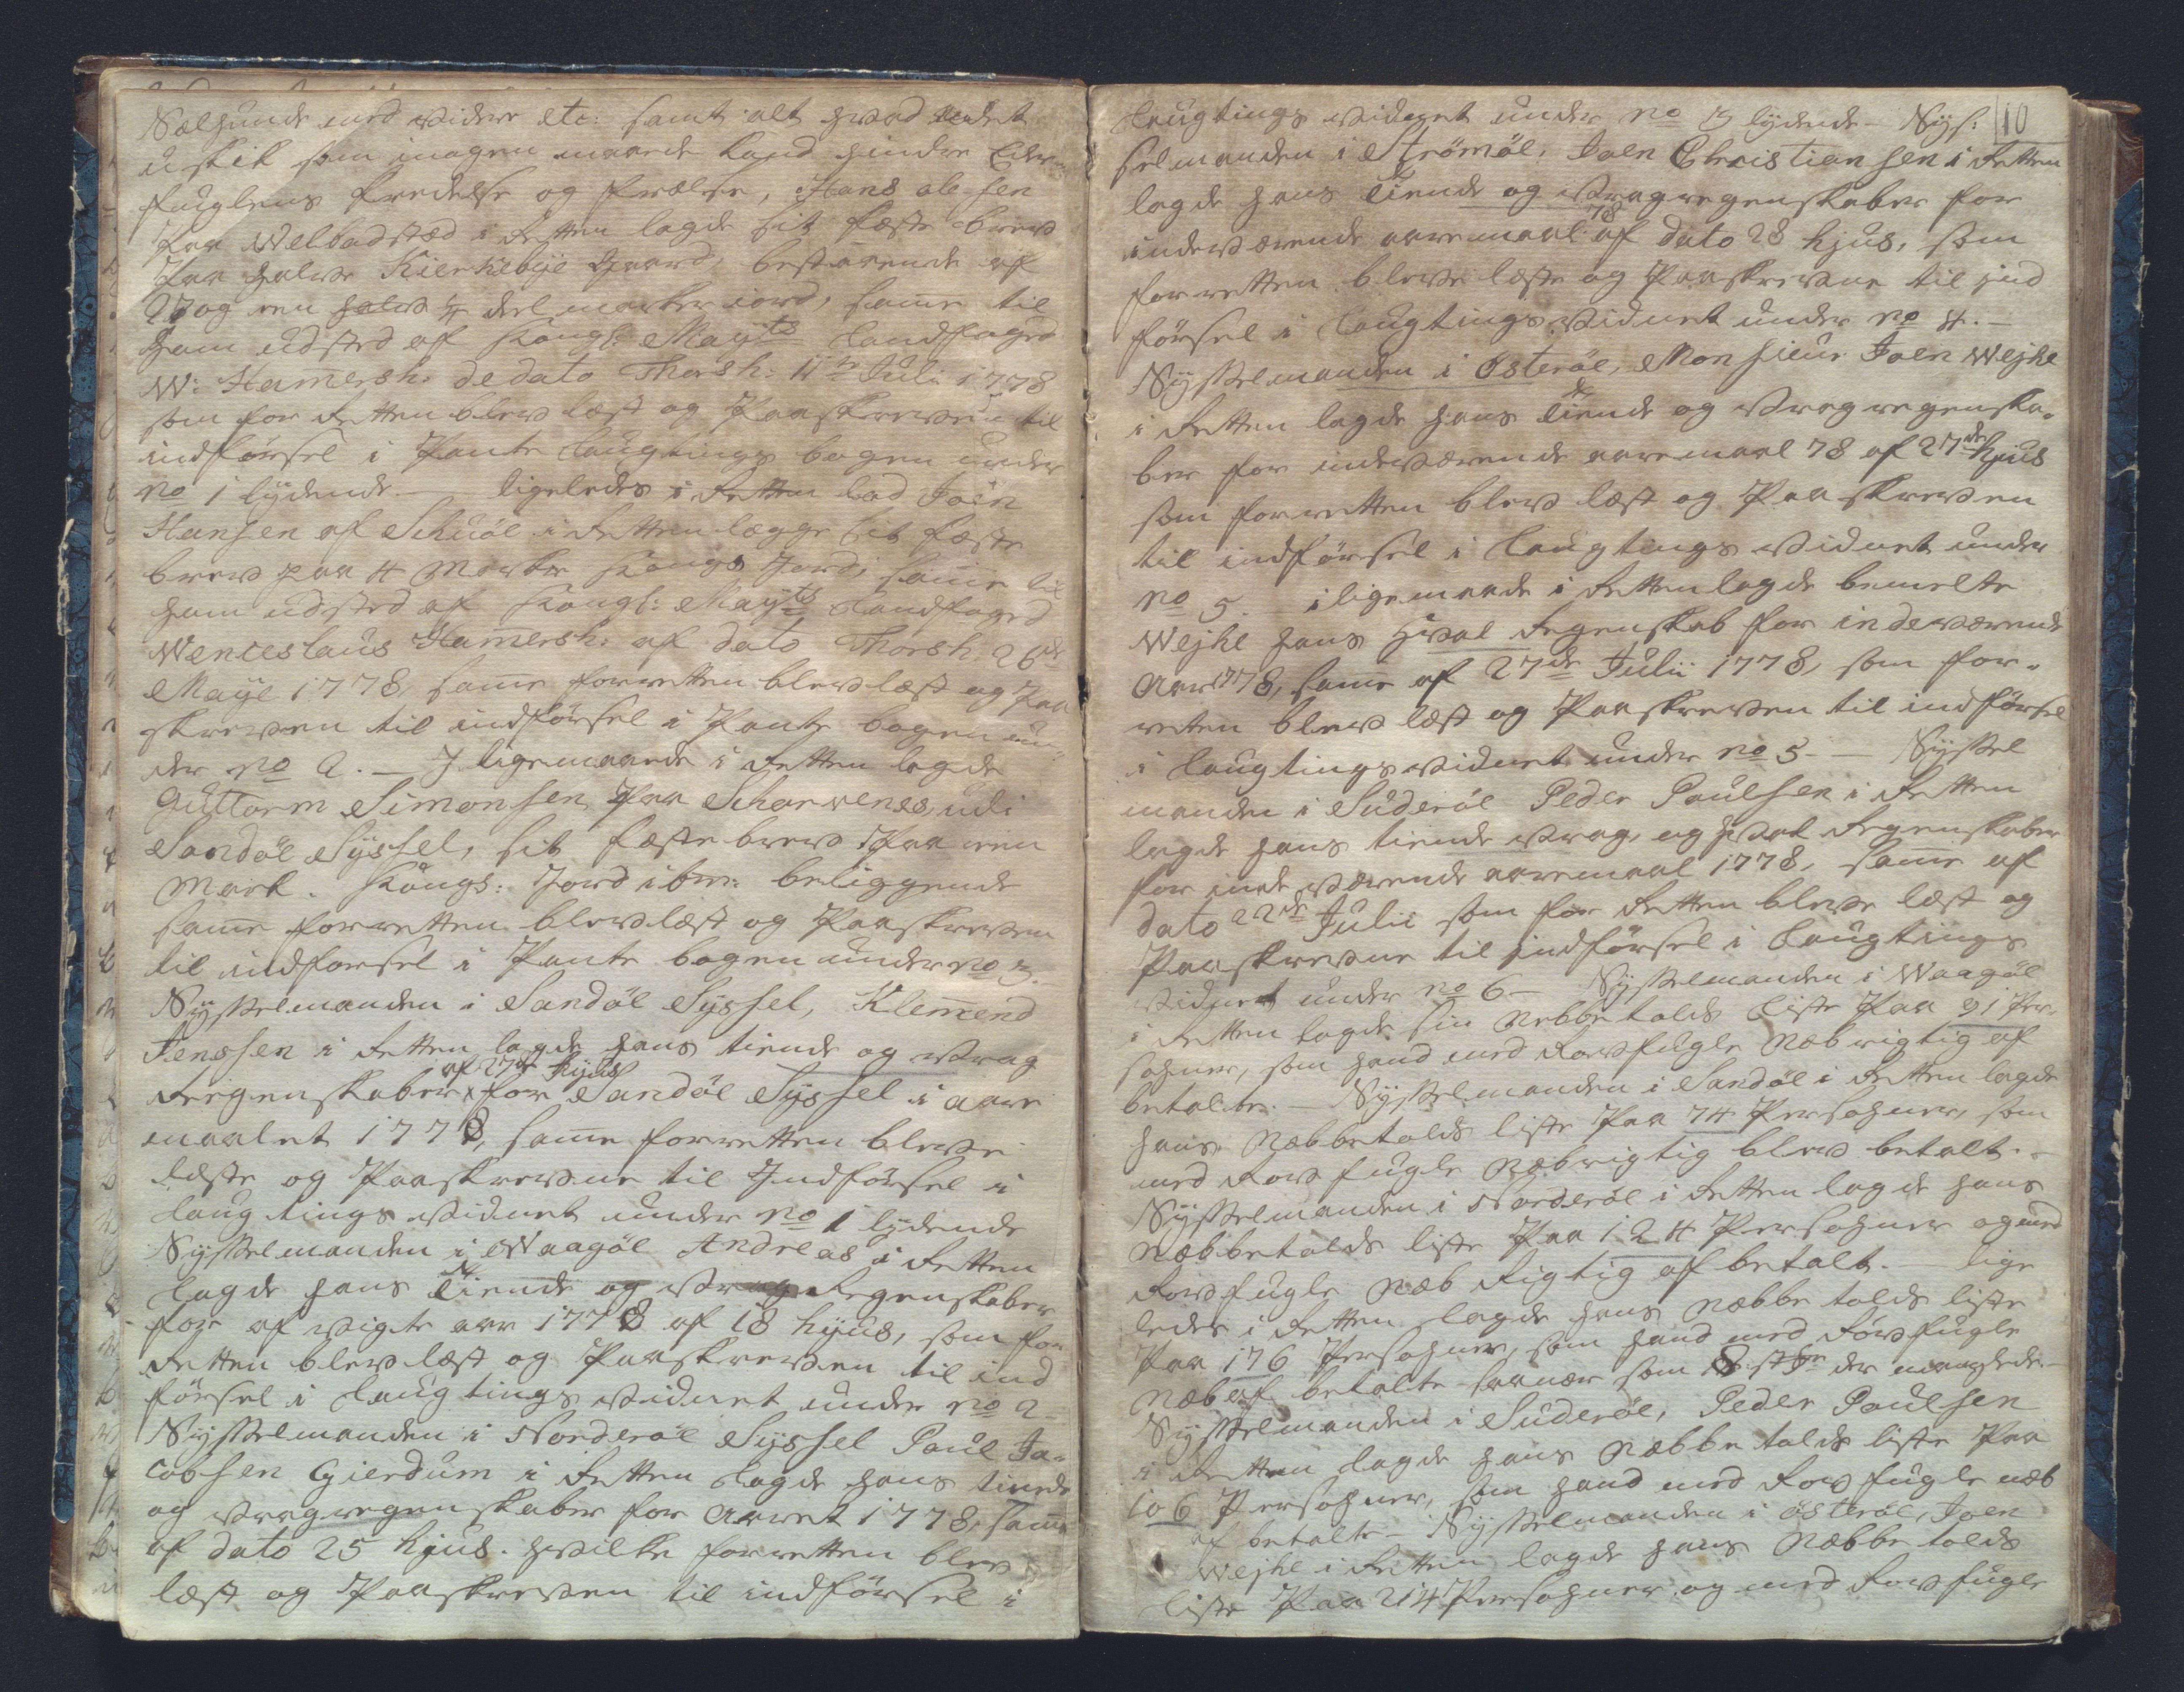 Sælhunde med videre etc: samt alt hvad andet
uskik som nogen maade kand hindre Eder-
fuglens fredelse og frælse, Hans olesen
Paa Welbadstæd i Retten lagde sit fæste brev
Paa halve Kierkebye Gaard, bestaaende af
27 og een halv 4 deel marker iord, same til
ham udsted af Kongl: Mayts Landfoged
W: Hamersh: de dato Thorsh: 11te Juli 1778
som for Retten blev læst og Paaskreven til
indførsel i Pante laugtings bogen under
no 1 lydende. — ligeledes i Retten lod Joen
Hansen af Schuøe i Retten lægge sit fæste
brev paa 4 Marker Kongs Jord, same til
ham udsted af Kongl: Mayts Landfoged
Wenceslaus Hamersh: af dato Thorsh: 26de
Maye 1778, same for retten blev læst og Paa
skreven til indførsel i Pante bogen un-
der no 2. — I ligemaade i Retten lagde
Guttorm Simonsen Paa Scharvenes, udi
Sandøe Syssel, sit fæste brev Paa een
Mark. Kongs: Jord ibm: beliggende
same for retten blev læst og Paaskreven
til indførsel i Pante bogen under no 3.
Sysselmanden i Sandøe Syssel, Klemend
Jenssen i Retten lagde hans tiende og vrag
Regenskaber af 27de hujus for Sandøe Syssel i aare
maalet 1778, same for retten bleve
læste og Paaskrevne til Indførsel i
laugtings vidnet under no 1 lydende
Sysselmanden i Waagøe Andreas i Retten
lagde hans Tiende og vrag Regenskaber
for af vigte aar 1778 af 18 hujus, som for
Retten blev læst og Paaskreven til ind
førsel i laugtings vidnet under no 2
Sysselmanden i Norderøe Syssel Poul Ja-
cobsen Gierdum i Retten lagde hans tiende
og vragregenskaber for Aaret 1778, same
af dato 25 hujus. hvilke for retten blev
læst og Paaskreven til indførsel i
10
laugtings vidnet under no 3 lydende — Sys:
selmanden i Strømøe, Joen Christiansen i Retten
lagde hans Tiende og vragregenskaber for
indeværende aaremaal 78 af dato 28 hujus, som
for retten bleve læste og Paaskrevne til ind
førsel i laugtings vidnet under no 4. —
Sysselmanden i Østerøe, Monsieur Joen Wejhe
i Retten lagde hans Tiende og vragregenska-
ber for indeværende aaremaal 78 af 27de hujus
som for retten blev læst og Paaskreven
til indførsel i laugtings vidnet under
no 5. iligemaade i Retten lagde bemelte
Wejhe hans Hval Regenskab for indeværende
Aar 1778, same af 27de Julii 1778, som for-
retten blev læst og Paaskreven til indførsel
i laugtingsvidnet under no 5. — Syssel
manden i Suderøe Peder Poulsen i Retten
lagde hans tiende vrag, og hval Regenskaber
for indeværende aaremaal 1778, same af
dato 22de Julii som for Retten bleve læst og
Paaskrevne til indførsel i laugtings
vidnet under no 6 — Sysselmanden i Waagøe
i Retten lagde sin Nebbetolds liste Paa 91 Per-
sohner, som hand med Rovfugle Næb rigtig af
betalte. — Sysselmanden i Sandøe i Retten lagde
hans Næbbetolds liste Paa 74 Persohner, som
med Rovfugle Næb rigtig blev betalt. —
Sysselmanden i Norderøe i Retten lagde hans
Næbbetolds liste Paa 124 Persohner og med
Rovfugle Næb Rigtig af betalt. — lige
ledes i Retten lagde hans Næbbe tolds liste
Paa 176 Persohner, som hand med Rovfugle
Næb af betalte saanær som 8 stkr der manglede. —
Sysselmanden i Suderøe, Peder Poulsen
i Retten lagde hans Næbbe tolds liste Paa
106 Persohner, som hand med Rovfugle næb
af betalte — Sysselmanden i østerøe, Joen
Wejhe i Retten lagde hans Næbbe tolds
liste Paa 214 Persohner og med Rovfugle